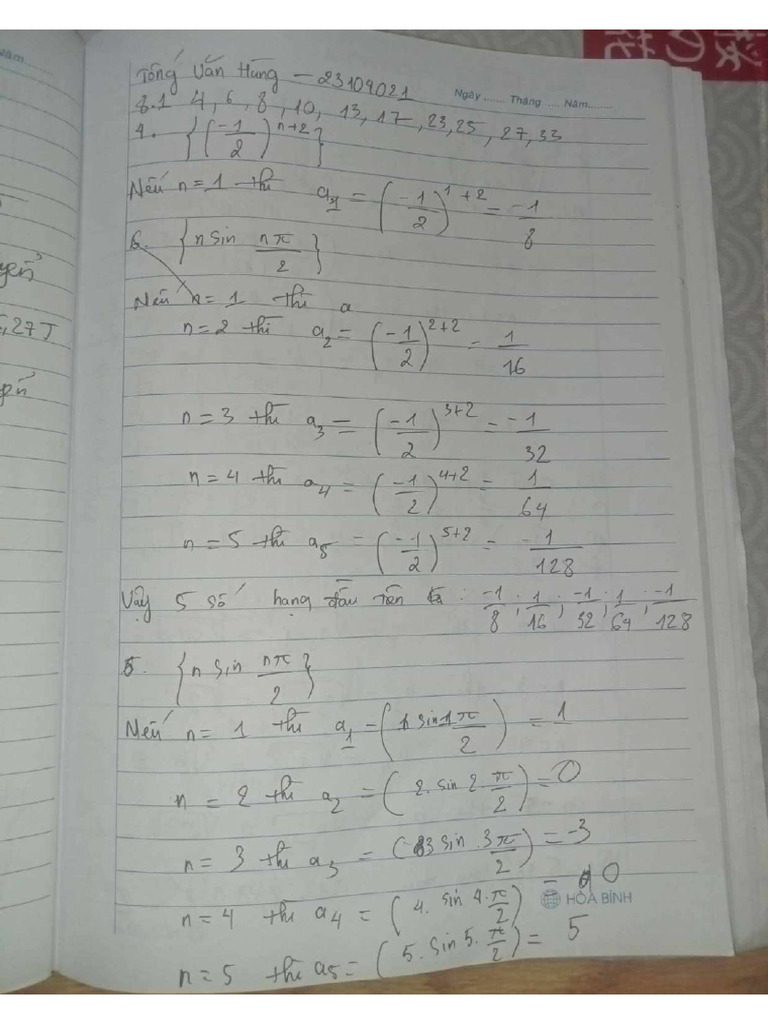 năm......
Tống Văn Hùng – 23109021
Ngày ...... Tháng ..... Năm........
8.1 4, 6, 8, 10, 13, 17, 23, 25, 27, 33
4. {(-1/2)^(n+2)}
Nếu n = 1 thì a1 = (-1/2)^(1+2) = -1/8
6. {n sin nπ/2}
Nếu n = 1 thì a
n = 2 thì a2 = (-1/2)^(2+2) = 1/16
, 27J
n = 3 thì a3 = (-1/2)^(3+2) = -1/32
n = 4 thì a4 = (-1/2)^(4+2) = 1/64
n = 5 thì a5 = (-1/2)^(5+2) = -1/128
Vậy 5 số hạng đầu tiên là : -1/8 ; 1/16 ; -1/32 ; 1/64 ; -1/128
6. {n sin nπ/2}
Nếu n = 1 thì a1 = (1 sin 1π/2) = 1
n = 2 thì a2 = (2. sin 2.π/2) = 0
n = 3 thì a3 = (3 sin 3π/2) = -3
n = 4 thì a4 = (4. sin 4.π/2) = 0
HÒA BÌNH
n = 5 thì a5 = (5. sin 5.π/2) = 5